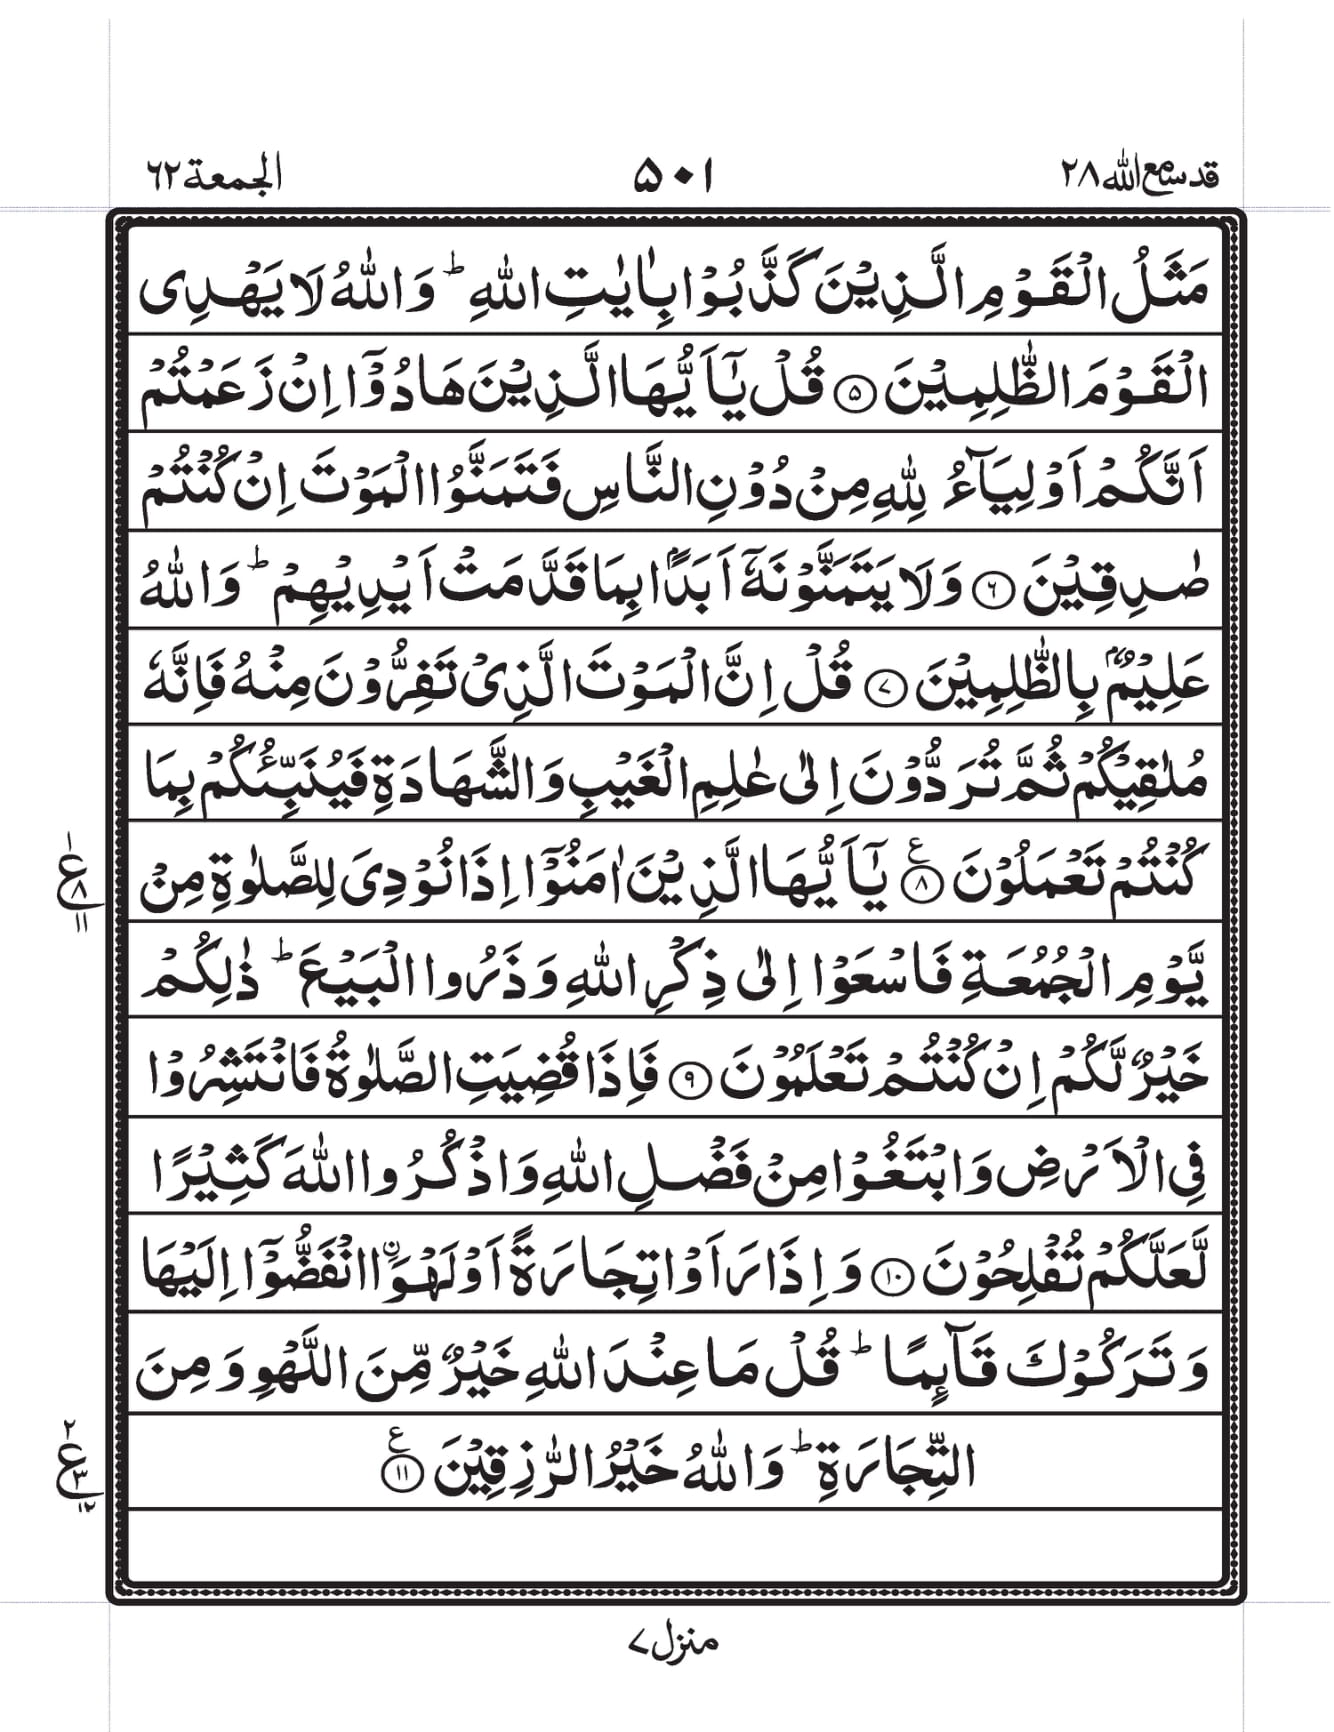 قد سمع الله ٢٨
٥٠١
الجمعة ٦٢
مَثَلُ الْقَوْمِ الَّذِيْنَ كَذَّبُوْا بِاٰيٰتِ اللّٰهِ ؕ وَاللّٰهُ لَا يَهْدِى
الْقَوْمَ الظّٰلِمِيْنَ ﴿۵﴾ قُلْ يٰۤاَيُّهَا الَّذِيْنَ هَادُوْۤا اِنْ زَعَمْتُمْ
اَنَّكُمْ اَوْلِيَآءُ لِلّٰهِ مِنْ دُوْنِ النَّاسِ فَتَمَنَّوُا الْمَوْتَ اِنْ كُنْتُمْ
صٰدِقِيْنَ ﴿۶﴾ وَلَا يَتَمَنَّوْنَهٗۤ اَبَدًۢا بِمَا قَدَّمَتْ اَيْدِيْهِمْ ؕ وَاللّٰهُ
عَلِيْمٌۢ بِالظّٰلِمِيْنَ ﴿۷﴾ قُلْ اِنَّ الْمَوْتَ الَّذِىْ تَفِرُّوْنَ مِنْهُ فَاِنَّهٗ
مُلٰقِيْكُمْ ثُمَّ تُرَدُّوْنَ اِلٰى عٰلِمِ الْغَيْبِ وَالشَّهَادَةِ فَيُنَبِّئُكُمْ بِمَا
كُنْتُمْ تَعْمَلُوْنَ ﴿۸﴾ ع يٰۤاَيُّهَا الَّذِيْنَ اٰمَنُوْۤا اِذَا نُوْدِىَ لِلصَّلٰوةِ مِنْ
١ ع ٨ ١١
يَّوْمِ الْجُمُعَةِ فَاسْعَوْا اِلٰى ذِكْرِ اللّٰهِ وَذَرُوا الْبَيْعَ ؕ ذٰلِكُمْ
خَيْرٌ لَّكُمْ اِنْ كُنْتُمْ تَعْلَمُوْنَ ﴿۹﴾ فَاِذَا قُضِيَتِ الصَّلٰوةُ فَانْتَشِرُوْا
فِى الْاَرْضِ وَابْتَغُوْا مِنْ فَضْلِ اللّٰهِ وَاذْكُرُوا اللّٰهَ كَثِيْرًا
لَّعَلَّكُمْ تُفْلِحُوْنَ ﴿۱۰﴾ وَاِذَا رَاَوْا تِجَارَةً اَوْ لَهْوَا۟ ۨانْفَضُّوْۤا اِلَيْهَا
وَتَرَكُوْكَ قَآئِمًا ؕ قُلْ مَا عِنْدَ اللّٰهِ خَيْرٌ مِّنَ اللَّهْوِ وَمِنَ
التِّجَارَةِ ؕ وَاللّٰهُ خَيْرُ الرّٰزِقِيْنَ ﴿۱۱﴾ ع
٢ ع ٣ ١٢
منزل ۷